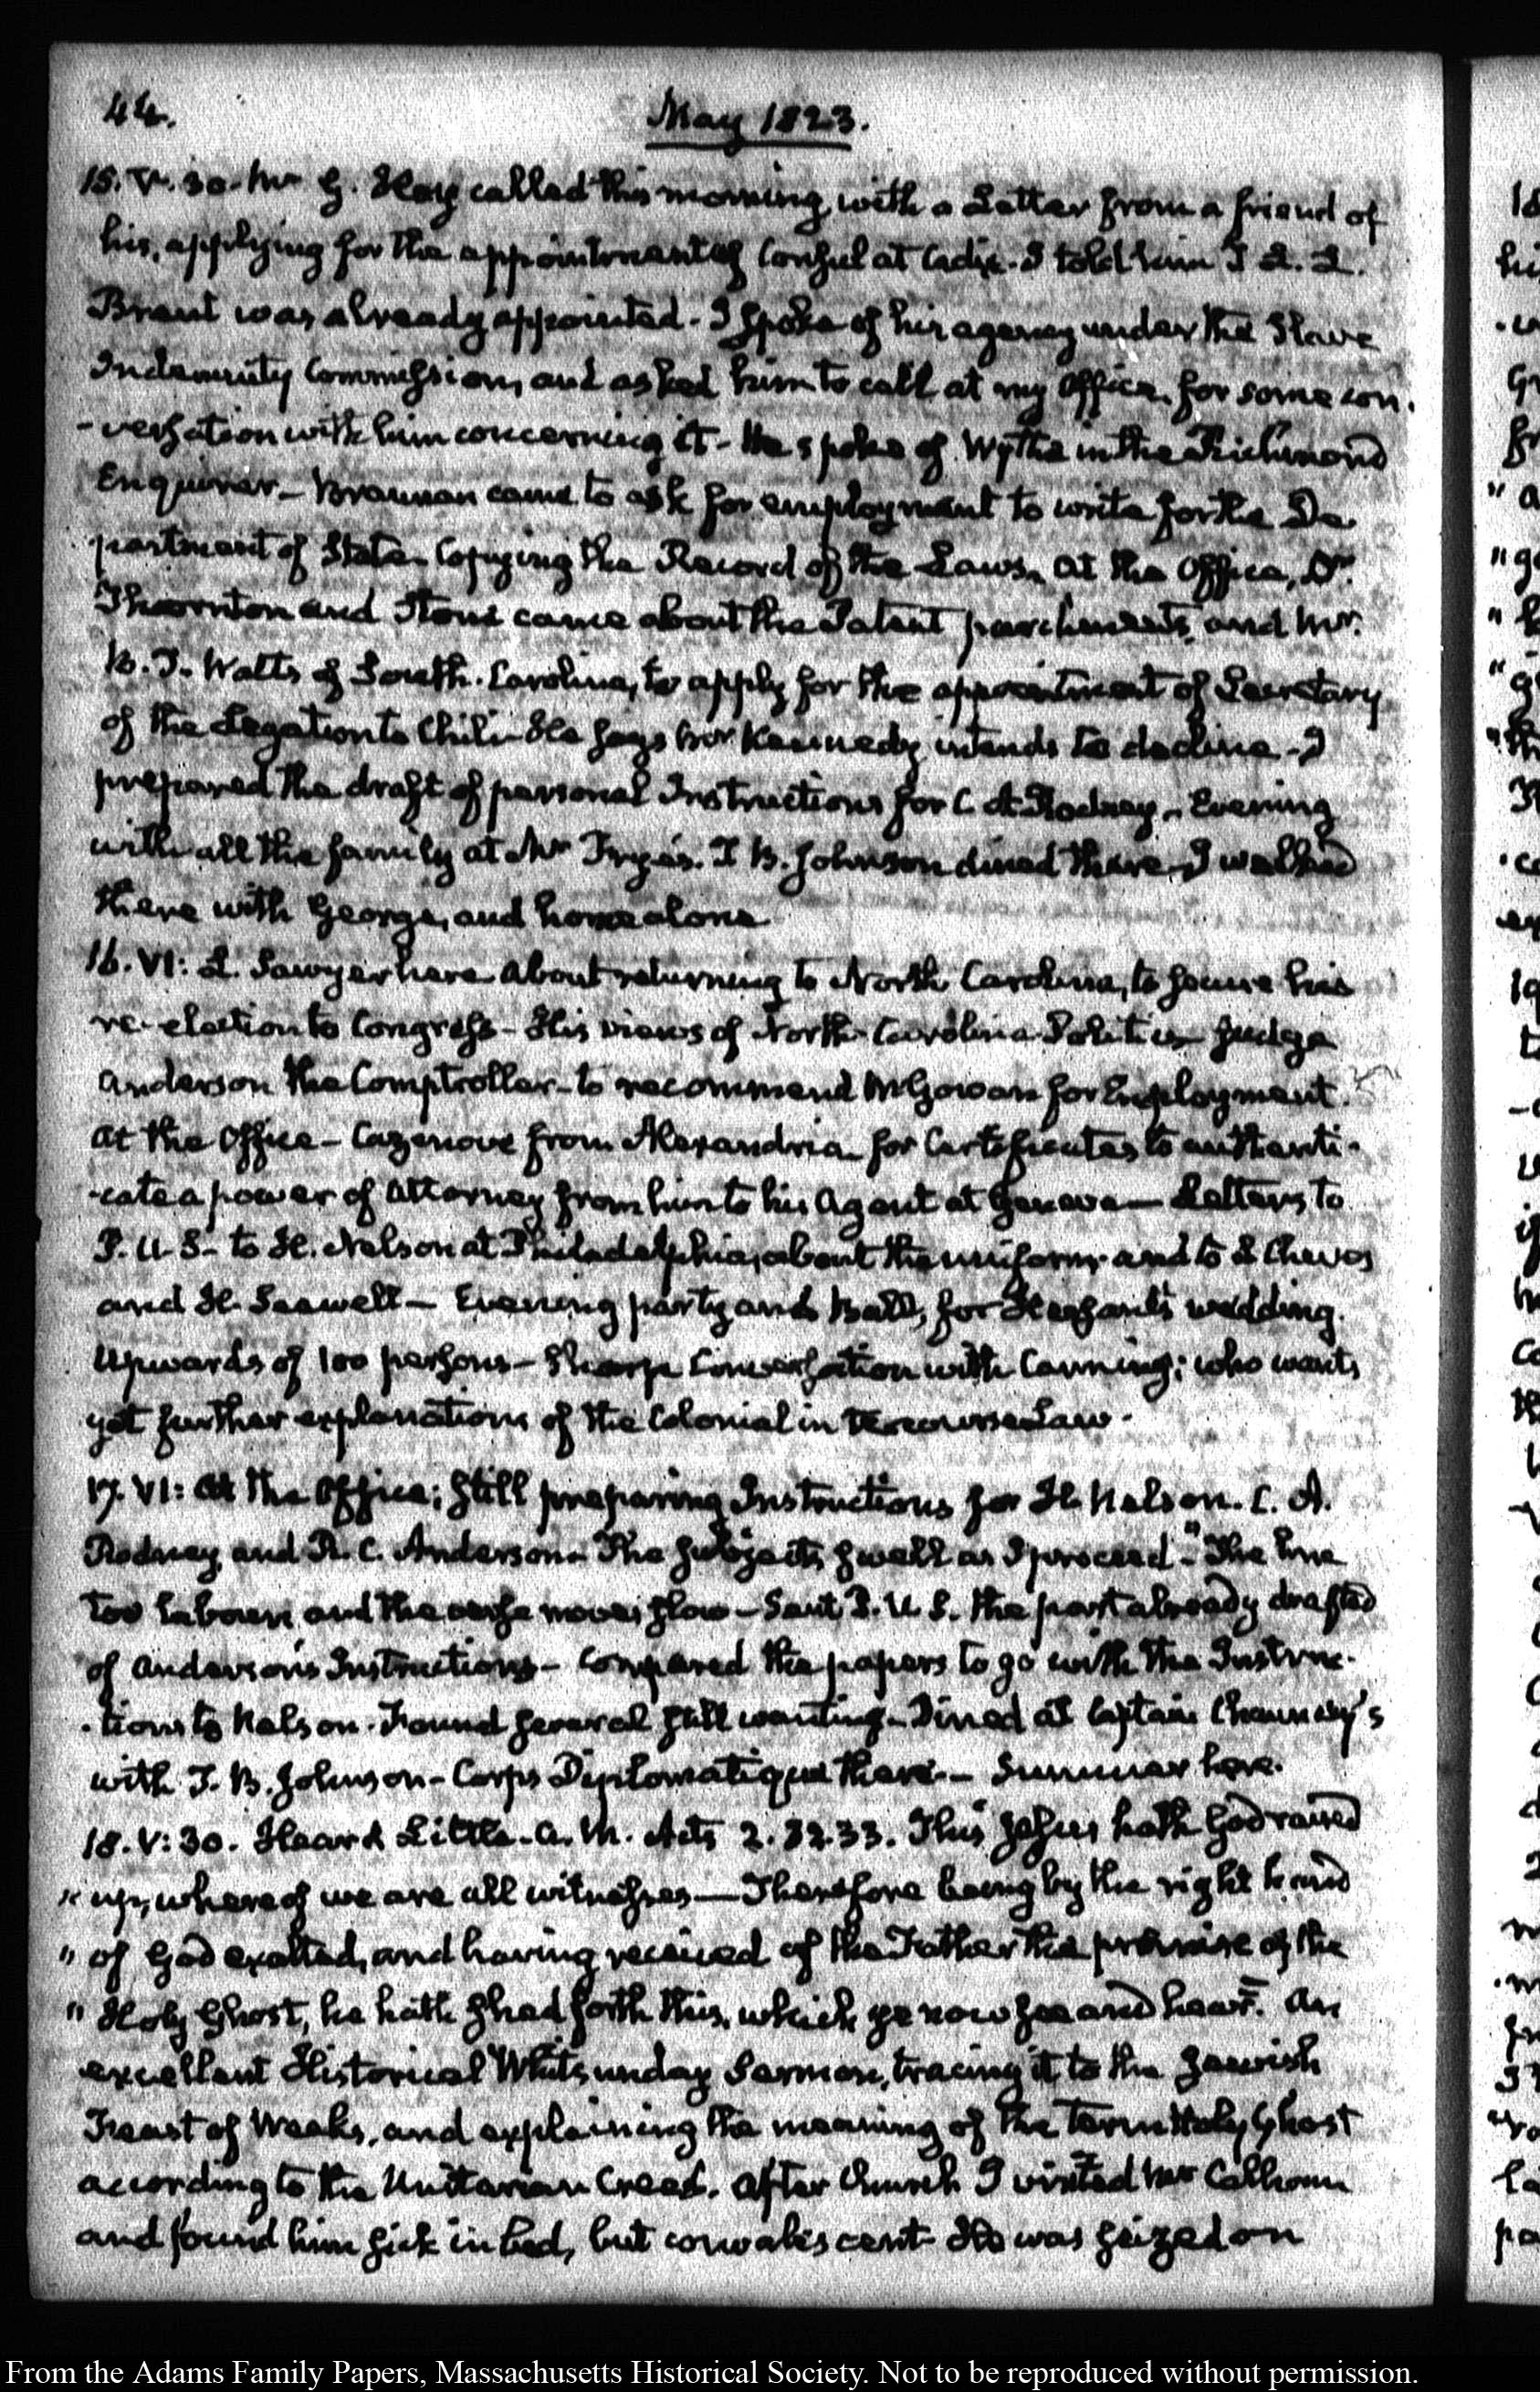 44.
May 1823.
15. V. 30. Mr G. Hay called this morning, with a Letter from a friend of
his, applying for the appointment of Consul at Cadiz. I told him
Brent was already appointed. I spoke of his agency under the Slave
Indemnity Commission, and asked him to call at my Office for some con-
-versation with him concerning it. He spoke of Wythe in the Richmond
Enquirer. Brannan came to ask for employment to write for the De-
partment of State. Copying the Record of the Laws. At the Office, Dr
Thornton and Stone came about the Patent parchments, and Mr
B. T. Watts of South-Carolina, to apply for the appointment of Secretary
of the Legation to Chili. He says Mr Kennedy intends to decline. I
prepared the draft of personal Instructions for C. A. Rodney. Evening
with all the family at Mr Frye's. T. B. Johnson dined there. I walked
there with George, and home alone
16. VI: L. Sawyer here about returning to North Carolina, to secure his
re-election to Congress. His views of North-Carolina Politics. Judge
Anderson the Comptroller to recommend McGowan for Employment.
At the Office. Cazenove from Alexandria for Certificates to authenti-
-cate a power of Attorney from him to his Agent at Geneva. Letters to
P. U. S. to H. Nelson at Philadelphia, about the uniform. and to L Cheves
and H. Seawell. Evening party and Ball, for wedding.
Upwards of 100 persons. Sharp Conversation with Canning; who wants
yet further explanations of the Colonial intercourse Law.
17. VI: At the Office; still preparing Instructions for H. Nelson. C. A.
Rodney, and R. C. Anderson. The subjects swell as I proceed. "The line
too labours and the verse moves slow. Sent P. U. S. the part already drafted
of Anderson's Instructions. Compared the papers to go with the Instruc-
-tions to Nelson. Found several still wanting. Dined at Captain Chauncey's
with T. B. Johnson. Corps Diplomatique there. Summer here.
18. V: 30. Heard Little. A. M. Acts 2. 32.33. "This Jesus hath God raised
" up, whereof we are all witnesses—Therefore being by the right hand
" of God exalted, and having received of the Father the promise of the
" Holy Ghost, he hath shed forth this, which ye now see and hear". An
excellent Historical Whitsunday Sermon, tracing it to the Jewish
Feast of Weeks, and explaining the meaning of the term Holy Ghost
according to the Unitarian Creed. After Church I visited Mr Calhoun
and found him sick in bed, but convalescent. He was seized on
From the Adams Family Papers, Massachusetts Historical Society. Not to be reproduced without permission.